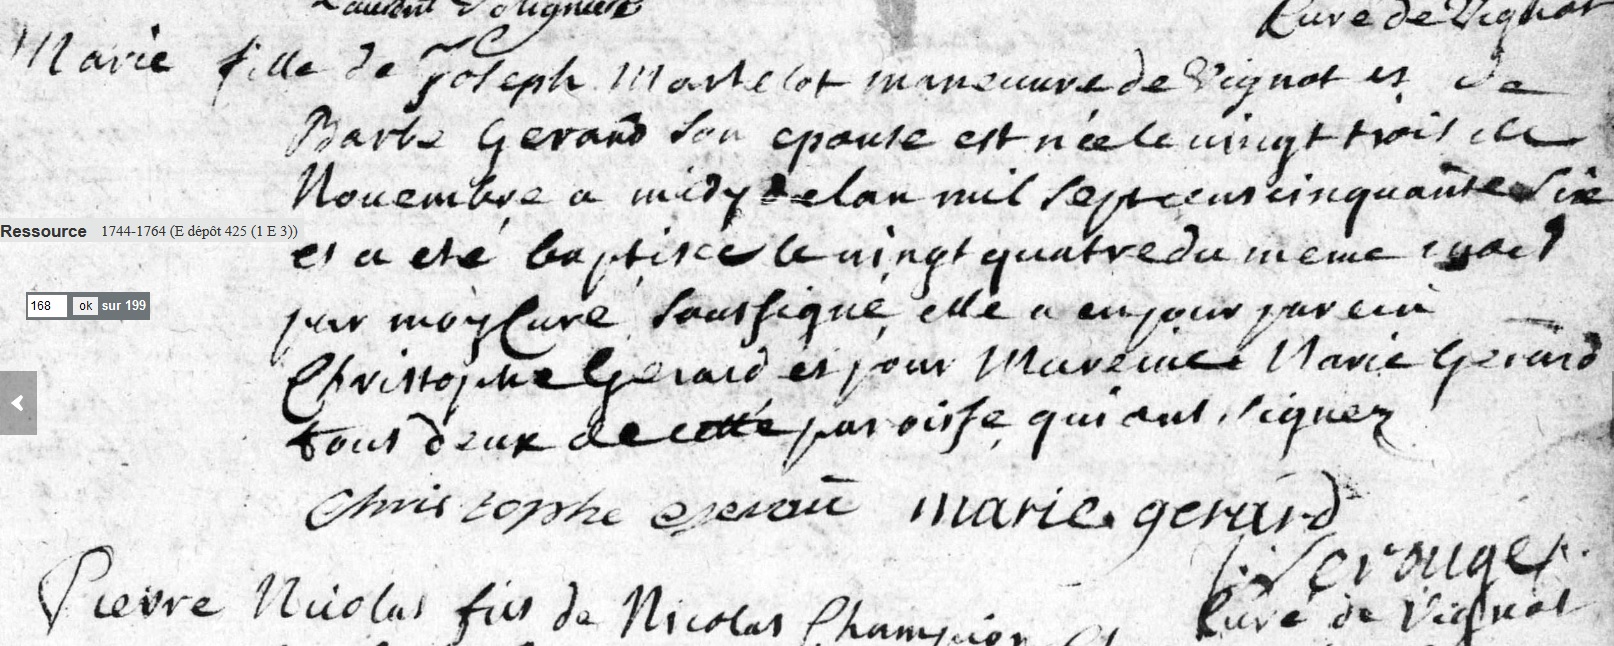 Curé de Vignot
Marie fille de Joseph Martelot maneuvre de Vignot et de
Barbe Gerard son epouse est née le vingt trois de
Novembre a midy de lan mil sept cens cinquante Six
et a eté baptisée le vingt quatre du meme mois
Ressource 1744-1764 (E dépôt 425 (1 E 3))
168 ok sur 199
par moy Curé soussigné, elle a eu pour parein
Christophe Gerard et pour Mareine Marie Gerard
tous deux de cette paroisse, qui ont signez
christophe gerard marie gerard
J. Lerouge
Pierre Nicolas fils de Nicolas Champion
Curé de Vignot